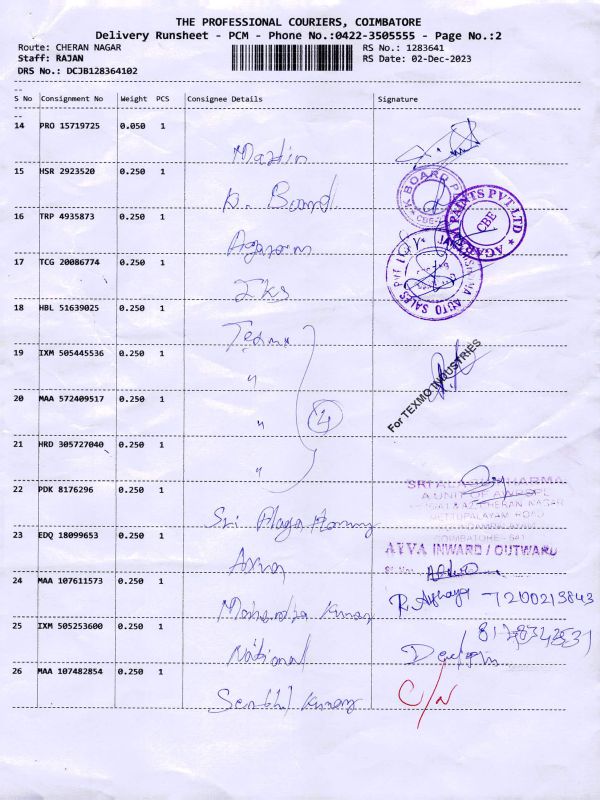 THE PROFESSIONAL COURIERS, COIMBATORE
Delivery Runsheet - PCM - Phone No.:0422-3505555 - Page No.:2
Route: CHERAN NAGAR RS No.: 1283641
Staff: RAJAN RS Date: 02-Dec-2023
DRS No.: DCJB128364102
S No Consignment No Weight PCS Consignee Details Signature
14 PRO 15719725 0.050 1
Martin
15 HSR 2923520 0.250 1
K. Board
K BOARD P
16 TRP 4935873 0.250 1
AGARVI PAINTS PVT.LTD
CBE
17 TCG 20086774 0.250 1
AUTO SALES PVT
18 HBL 51639025 0.250 1
Texmo
19 IXM 505445536 0.250 1
"
For TEXMO INDUSTRIES
20 MAA 572409517 0.250 1
" 4
21 HRD 305727040 0.250 1
"
22 PDK 8176296 0.250 1
Sri
A UNIT OF
CHERAN NAGAR
METTUPALAYAM ROAD
COIMBATORE - 641
23 EDQ 18099653 0.250 1
INWARD / OUTWARD
24 MAA 107611573 0.250 1
Mahendra Kumar
7200213843
25 IXM 505253600 0.250 1
National
26 MAA 107482854 0.250 1
Senthil Kumar
C/N